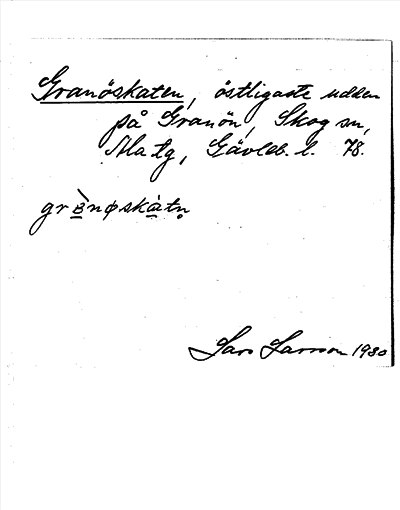 Granöskaten, östligaste udden
på Granön, Skog sn,
Ala tg, Gävleb. l. 78.
grànøskàtn̥
Lars Larsson 1930